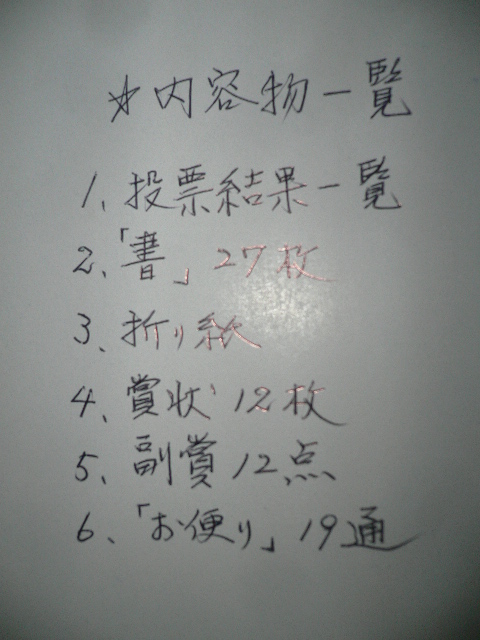 ☆内容物一覧
1、投票結果一覧
2、「書」27枚
3、折り紙
4、賞状 12枚
5、副賞 12点
6、「お便り」19通